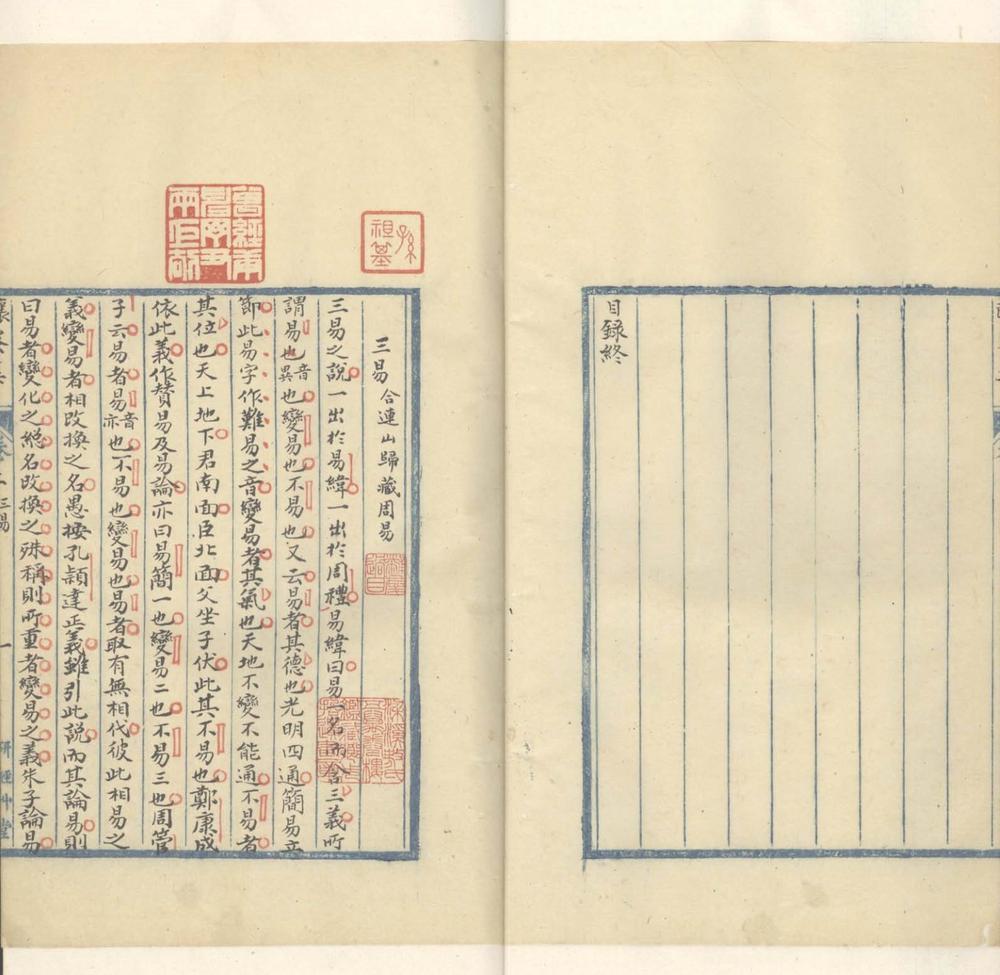 目録終
三易合連山歸藏周易
三易之說一出於易緯一出於周禮易緯曰易一名而含三義所
謂易也音異也變易也不易也又云易者其德也光明四通簡易立
節此易字作難易之音變易者其氣也天地不變不能通不易者
其位也天上地下君南面臣北面父坐子伏此其不易也鄭康成
依此義作賛易及易論亦曰易簡一也變易二也不易三也周簡
子云易者易音亦也不易也變易也易者取有無相代彼此相易之
義變易者相改換之名愚按孔頴達正義雖引此說而其論易則
曰易者變化之緫名改換之殊稱則所重者變易之義朱子論易
三易
一
孫
祖基